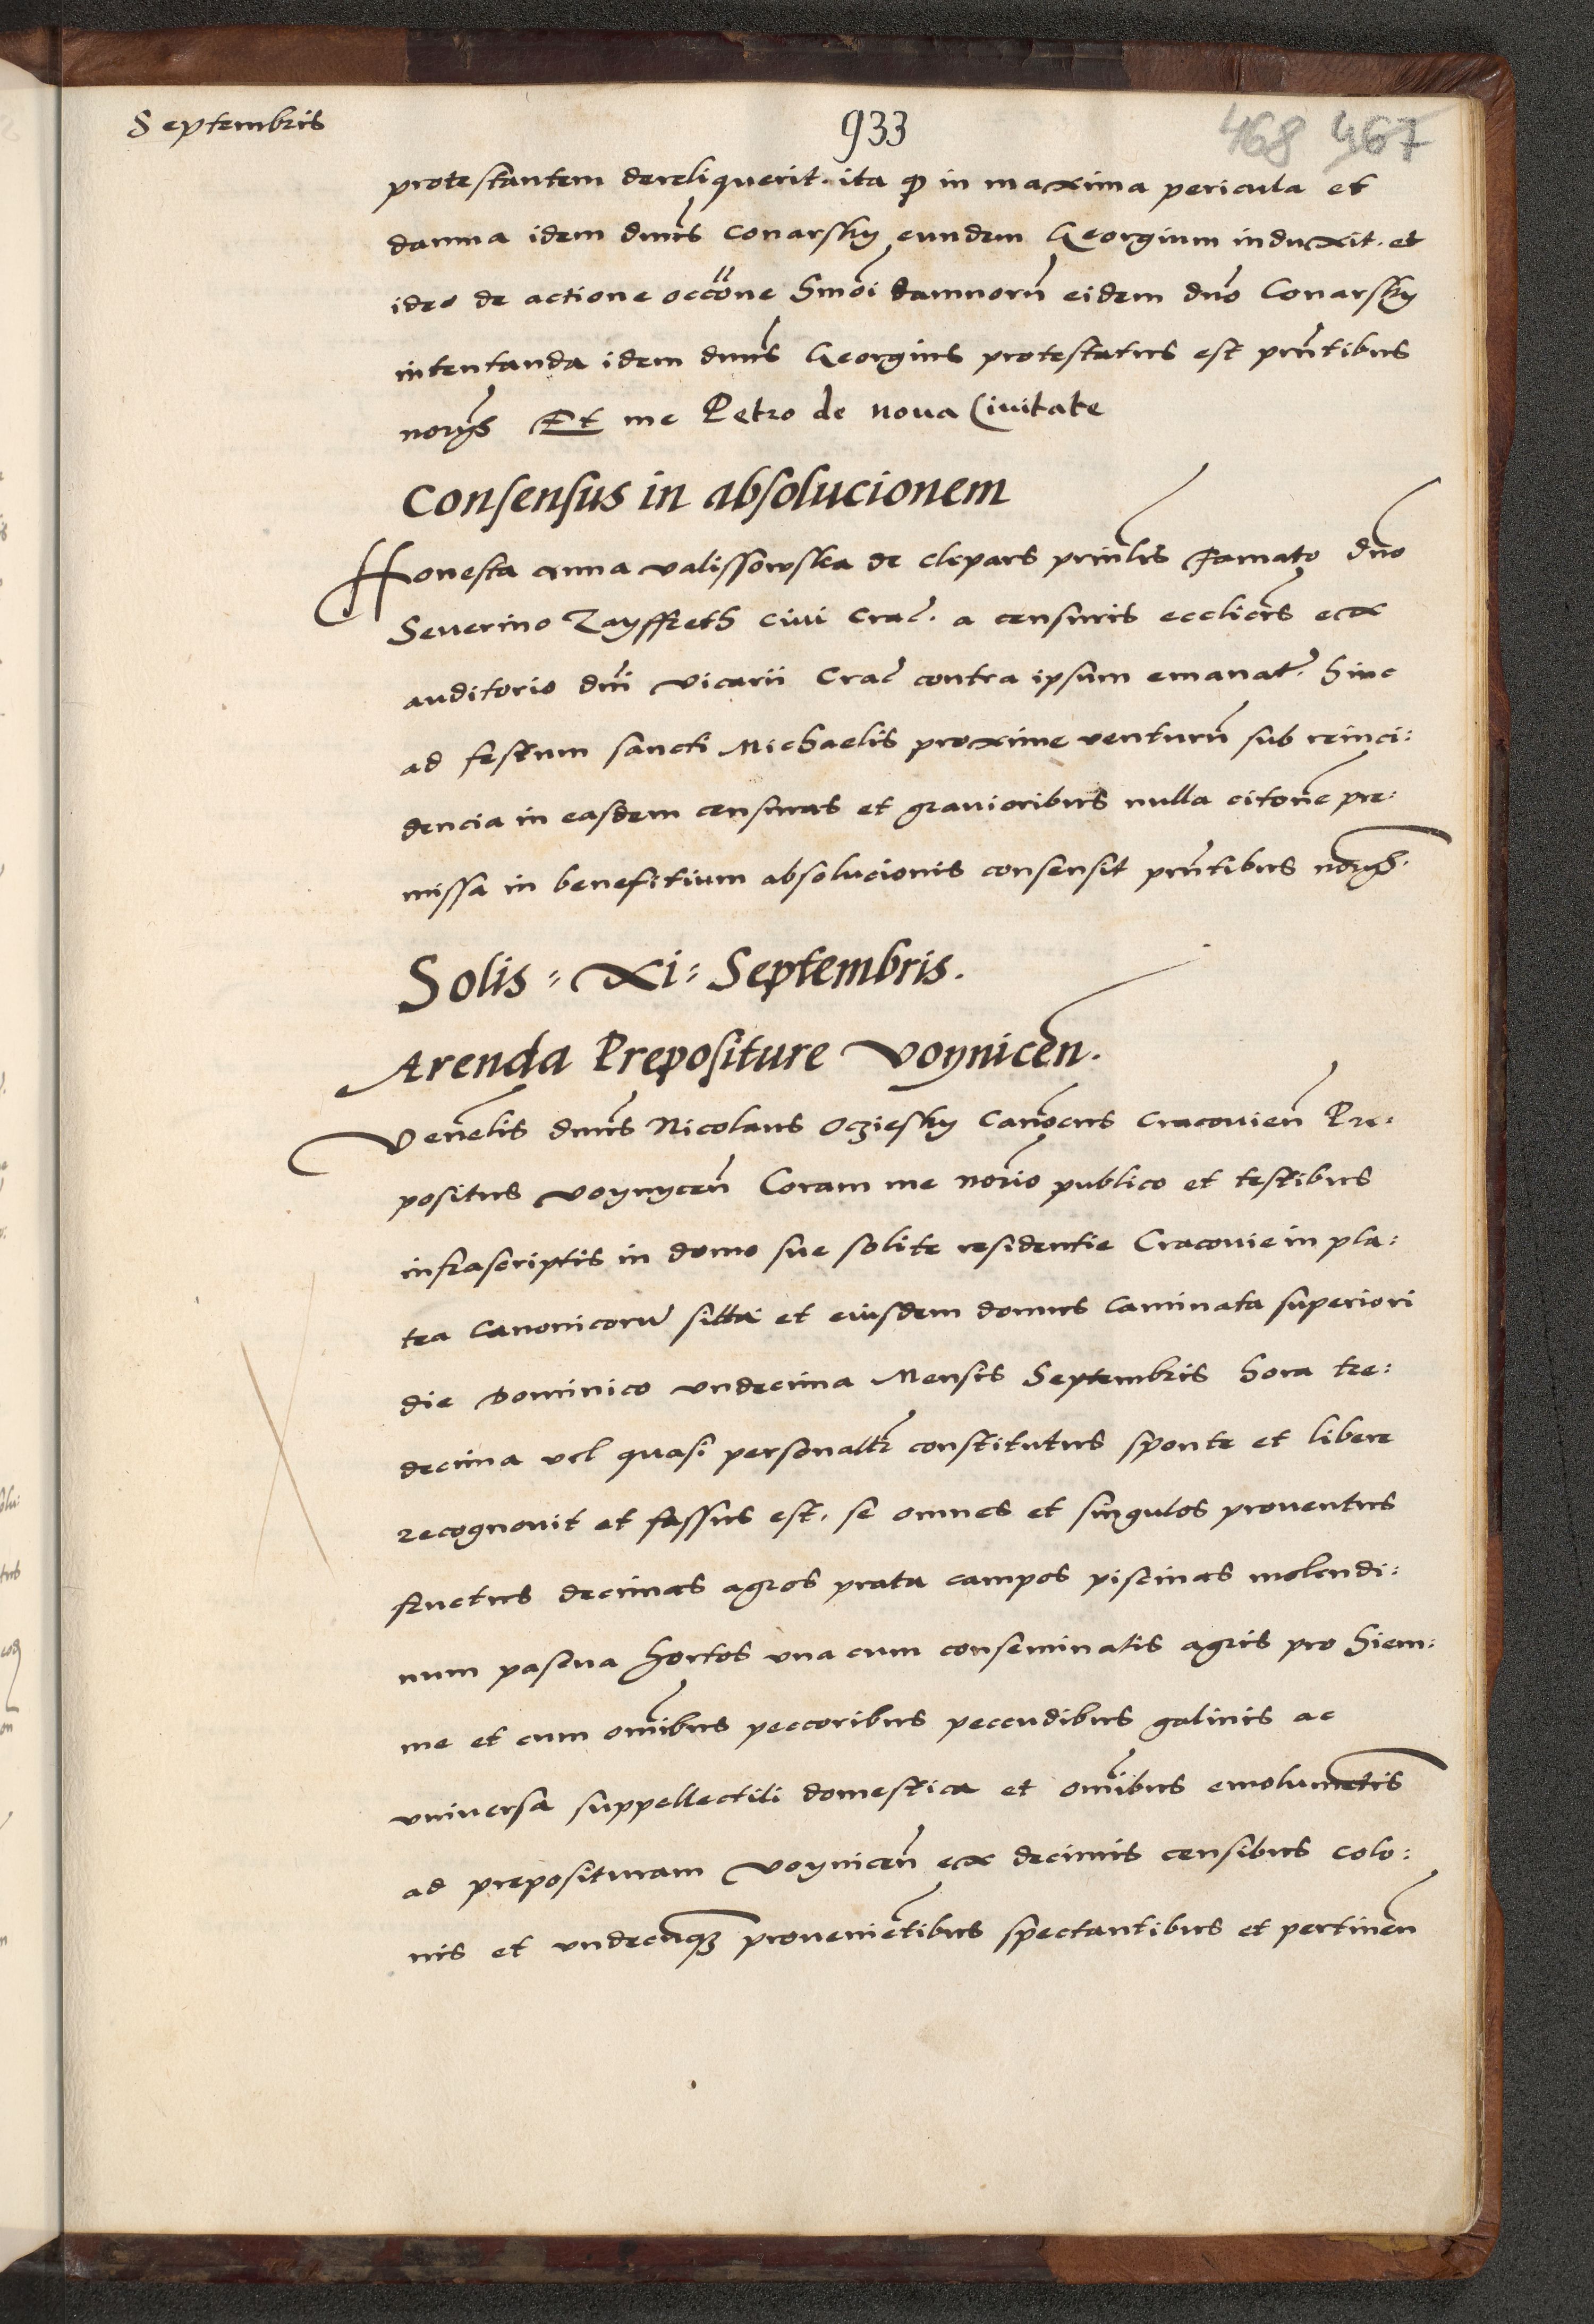 Septembris
933
468 467
protestantem dereliquerit. ita ꝙ in maxima pericula et
damna idem dnus Conarsky eundem Georgium induxit. et
ideo de actione occone hmoi damnorũ eidem dño Conarsky
intentanda idem dnus Georgius protestatus est pñtibus
norijs Et me Petro de Noua Ciuitate
Consensus in absolucionem
Honesta Anna Valissowska de Clepars prinlis Famato dño
Seuerino Zayffreth Ciui Crac̃. a censuris ecclicis ex
auditorio dñi Vicarii Crac̃ contra ipsum emanat̃. hinc
ad festum sancti Michaelis proxime venturũ sub reinci:
dencia in easdem censuras et grauioribus nulla citone pre:
missa in benefitium absolucionis consensit pñtibus norijs.
Solis : XI : Septembris.
Arenda Prepositure Voynicen̄.
Venelis dnus Nicolaus Ocziesky Canocus Cracouien̄ Pre:
positus Voynycen̄ Coram me norio publico et testibus
infrascriptis in domo sue solite residentie Cracouie in pla:
tea Canonicorũ sitta et eiusdem domus Caminata superiori
die Dominico vndecima Mensis Septembris hora tre:
decima vel quasi personaltr̃ constitutus sponte et libere
recognouit et fassus est, se omnes et singulos prouentus
fructus decimas agros prata campos piscinas molendi:
num pascua hortos vna cum conseminatis agris pro hiem:
me et cum omĩbus peccoribus peccudibus galinis ac
vniuersa suppellectili domestica et omĩbus emolumẽtis
ad preposituram Voynicen̄ ex decimis censibus colo:
nis et vndecũqȝ prouenie͂tibus spectantibus et pertinen̄